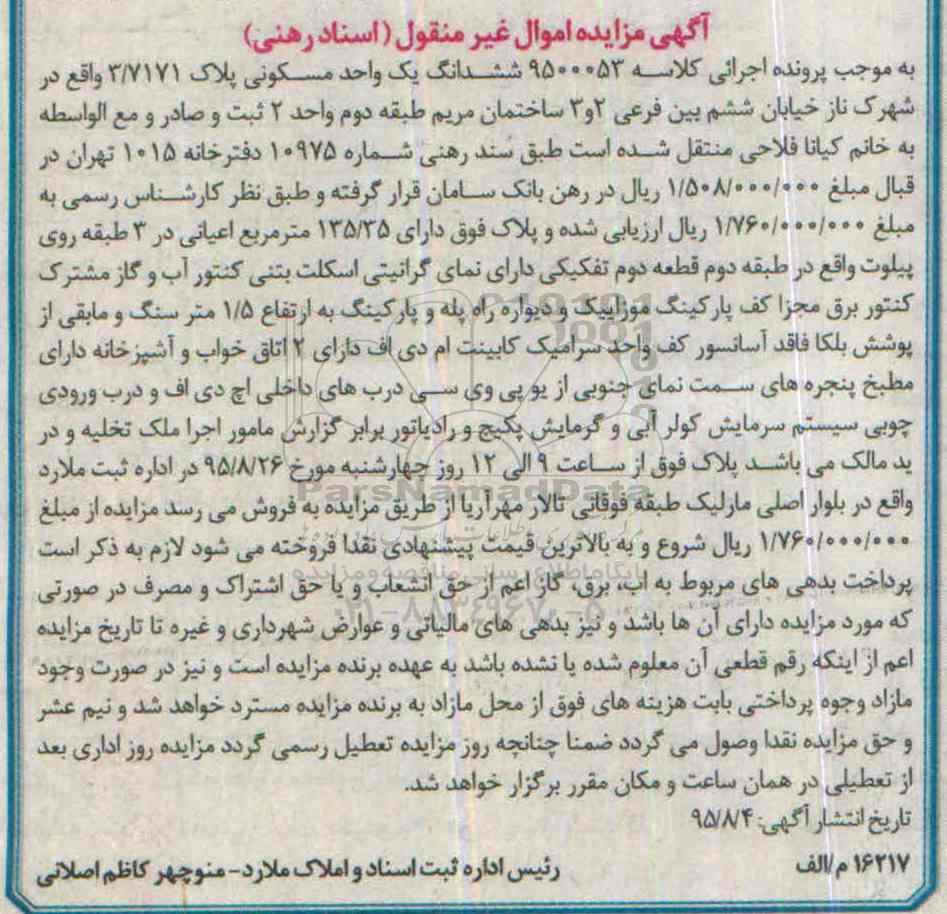 آگهی مزایده اموال غیر منقول (اسناد رهنی)
به موجب پرونده اجرائی کلاسه ۹۵۰۰۰۵۳ ششدانگ یک واحد مسکونی پلاک ۳/۷۱۷۱ واقع در
شهرک ناز خیابان ششم بین فرعی ۲و۳ ساختمان مریم طبقه دوم واحد ۲ ثبت و صادر و مع الواسطه
به خانم کیانا فلاحی منتقل شده است طبق سند رهنی شماره ۱۰۹۷۵ دفترخانه ۱۰۱۵ تهران در
قبال مبلغ ۱/۵۰۸/۰۰۰/۰۰۰ ریال در رهن بانک سامان قرار گرفته و طبق نظر کارشناس رسمی به
مبلغ ۱/۷۶۰/۰۰۰/۰۰۰ ریال ارزیابی شده و پلاک فوق دارای ۱۳۵/۳۵ مترمربع اعیانی در ۳ طبقه روی
پیلوت واقع در طبقه دوم قطعه دوم تفکیکی دارای نمای گرانیتی اسکلت بتنی کنتور آب و گاز مشترک
کنتور برق مجزا کف پارکینگ موزاییک و دیواره راه پله و پارکینگ به ارتفاع ۱/۵ متر سنگ و مابقی از
پوشش بلکا فاقد آسانسور کف واحد سرامیک کابینت ام دی اف دارای ۲ اتاق خواب و آشپزخانه دارای
مطبخ پنجره های سمت نمای جنوبی از یو پی وی سی درب های داخلی اچ دی اف و درب ورودی
چوبی سیستم سرمایش کولر آبی و گرمایش پکیج و رادیاتور برابر گزارش مامور اجرا ملک تخلیه و در
ید مالک می باشد پلاک فوق از ساعت ۹ الی ۱۲ روز چهارشنبه مورخ ۹۵/۸/۲۶ در اداره ثبت ملارد
واقع در بلوار اصلی مارلیک طبقه فوقانی تالار مهرآریا از طریق مزایده به فروش می رسد مزایده از مبلغ
۱/۷۶۰/۰۰۰/۰۰۰ ریال شروع و به بالاترین قیمت پیشنهادی نقدا فروخته می شود لازم به ذکر است
پرداخت بدهی های مربوط به اب، برق، گاز اعم از حق انشعاب و یا حق اشتراک و مصرف در صورتی
که مورد مزایده دارای آن ها باشد و نیز بدهی های مالیاتی و عوارض شهرداری و غیره تا تاریخ مزایده
اعم از اینکه رقم قطعی آن معلوم شده یا نشده باشد به عهده برنده مزایده است و نیز در صورت وجود
مازاد وجوه پرداختی بابت هزینه های فوق از محل مازاد به برنده مزایده مسترد خواهد شد و نیم عشر
و حق مزایده نقدا وصول می گردد ضمنا چنانچه روز مزایده تعطیل رسمی گردد مزایده روز اداری بعد
از تعطیلی در همان ساعت و مکان مقرر برگزار خواهد شد.
تاریخ انتشار آگهی: ۹۵/۸/۴
۱۶۲۱۷ م/الف
رئیس اداره ثبت اسناد و املاک ملارد- منوچهر کاظم اصلانی
ParsNamadData
پایگاه اطلاع رسانی مناقصه و مزایده
۰۲۱-۸۸۳۴۹۶۷۰-۵